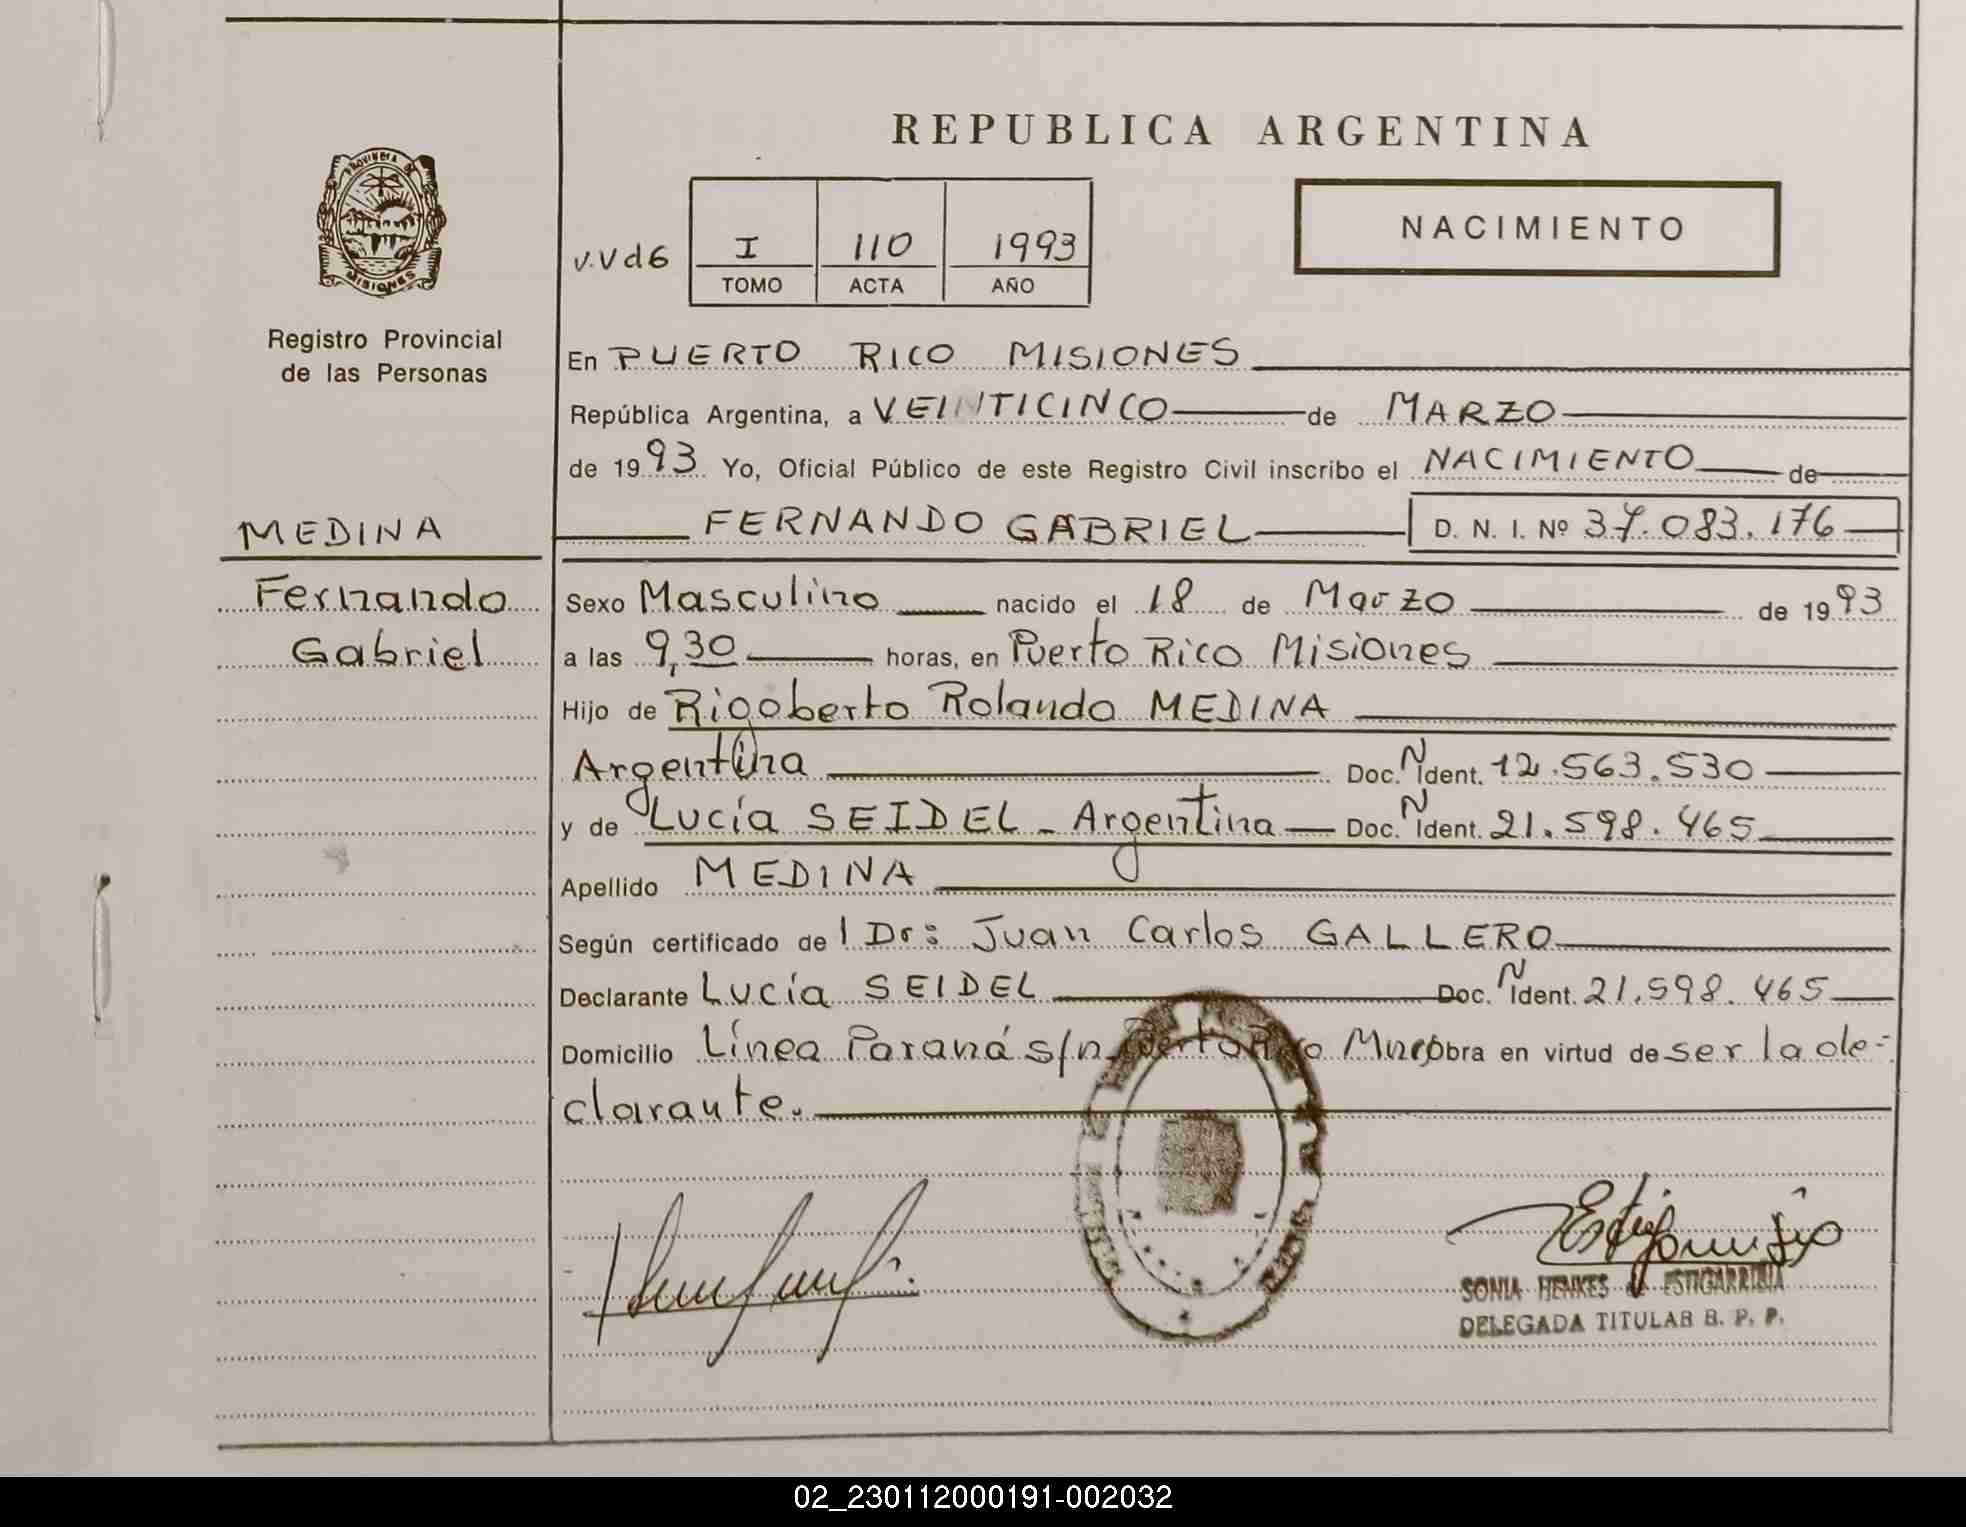 REPUBLICA ARGENTINA
PROVINCIA DE
MISIONES
Registro Provincial
de las Personas
NACIMIENTO
v.Vd6 I 110 1993
TOMO ACTA AÑO
En PUERTO RICO MISIONES
República Argentina, a VEINTICINCO de MARZO
de 1993 Yo, Oficial Público de este Registro Civil inscribo el NACIMIENTO de
MEDINA
Fernando
Gabriel
FERNANDO GABRIEL D. N. I. Nº 37.083.176
Sexo Masculino nacido el 18 de Marzo de 1993
a las 9,30 horas, en Puerto Rico Misiones
Hijo de Rigoberto Rolando MEDINA
Argentina Doc. N Ident. 12.563.530
y de Lucía SEIDEL - Argentina Doc. N Ident. 21.598.465
Apellido MEDINA
Según certificado de l Dr: Juan Carlos GALLERO
Declarante Lucía SEIDEL Doc. N Ident. 21.598.465
Domicilio Línea Paraná s/n Puerto Rico Mnes obra en virtud de ser la de-
clarante.
SONIA HENKES de ESTIGARRIBIA
DELEGADA TITULAR R. P. P.
02_230112000191-002032